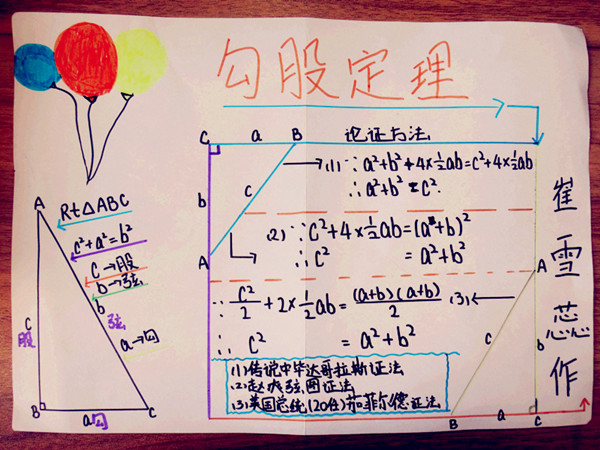 勾股定理
论证方法
C a B
b
c
A
(1) ∵ a²+b²+4×½ab=c²+4×½ab
∴ a²+b²=c².
(2) ∵ c²+4×½ab=(a+b)²
∴ c² = a²+b²
∵ c²/2 + 2×½ab = (a+b)(a+b)/2 (3)
∴ c² = a²+b²
(1)传说中毕达哥拉斯证法
(2)赵爽弦图证法
(3)美国总统(20任)茄菲尔德证法
A
c
b
B a C
A
Rt△ABC
c²+a²=b²
c→股
b→弦
b
弦
a→勾
c
股
B a勾 C
崔雪蕊作